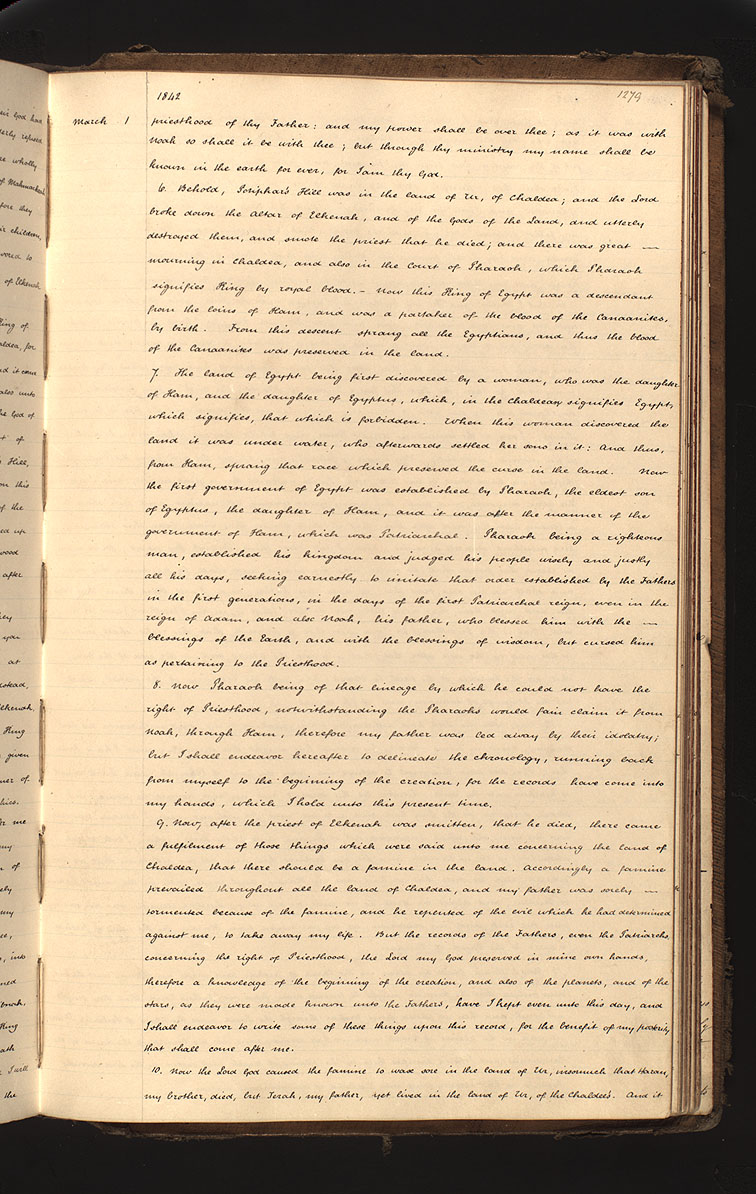 1842
1279
March 1
priesthood of thy Father: and my power shall be over thee; as it was with
Noah so shall it be with thee; but through thy ministry my name shall be
known in the earth for ever, for I am thy God.
6. Behold, Potiphar's Hill was in the land of Ur, of Chaldea; and the Lord
broke down the altar of Elkenah, and of the Gods of the Land, and utterly
destroyed them, and smote the priest that he died; and there was great —
mourning in Chaldea, and also in the Court of Pharaoh, which Pharaoh
signifies King by royal blood. – Now this King of Egypt was a descendant
from the loins of Ham, and was a partaker of the blood of the Canaanites,
by birth. From this descent sprang all the Egyptians, and thus the blood
of the Canaanites was preserved in the land.
7. The land of Egypt being first discovered by a woman, who was the daughter
of Ham, and the daughter of Egyptus, which, in the Chaldean signifies Egypt,
which signifies, that which is forbidden. When this woman discovered the
land it was under water, who afterwards settled her sons in it: And thus,
from Ham, sprang that race which preserved the curse in the land. Now
the first government of Egypt was established by Pharaoh, the eldest son
of Egyptus, the daughter of Ham, and it was after the manner of the
government of Ham, which was Patriarchal. Pharaoh being a righteous
man, established his kingdom and judged his people wisely and justly
all his days, seeking earnestly to imitate that order established by the Fathers
in the first generations, in the days of the first Patriarchal reign, even in the
reign of Adam, and also Noah, his father, who blessed him with the —
blessings of the Earth, and with the blessings of wisdom, but cursed him
as pertaining to the Priesthood.
8. Now Pharaoh being of that lineage by which he could not have the
right of Priesthood, notwithstanding the Pharaohs would fain claim it from
Noah, through Ham, therefore my father was led away by their idolatry;
but I shall endeavor hereafter to delineate the chronology, running back
from myself to the beginning of the creation, for the records have come into
my hands, which I hold unto this present time.
9. Now, after the priest of Elkenah was smitten, that he died, there came
a fulfilment of those things which were said unto me concerning the land of
Chaldea, that there should be a famine in the land. Accordingly a famine
prevailed throughout all the land of Chaldea, and my father was sorely —
tormented because of the famine, and he repented of the evil which he had determined
against me, to take away my life. But the records of the Fathers, even the Patriarchs,
concerning the right of Priesthood, the Lord my God preserved in mine own hands,
therefore a knowledge of the beginning of the creation, and also of the planets, and of the
stars, as they were made known unto the Fathers, have I kept even unto this day, and
I shall endeavor to write some of these things upon this record, for the benefit of my posterity
that shall come after me.
10. Now the Lord God caused the famine to wax sore in the land of Ur, insomuch that Haran,
my brother, died, but Terah, my father, yet lived in the land of Ur, of the Chaldee's. And it